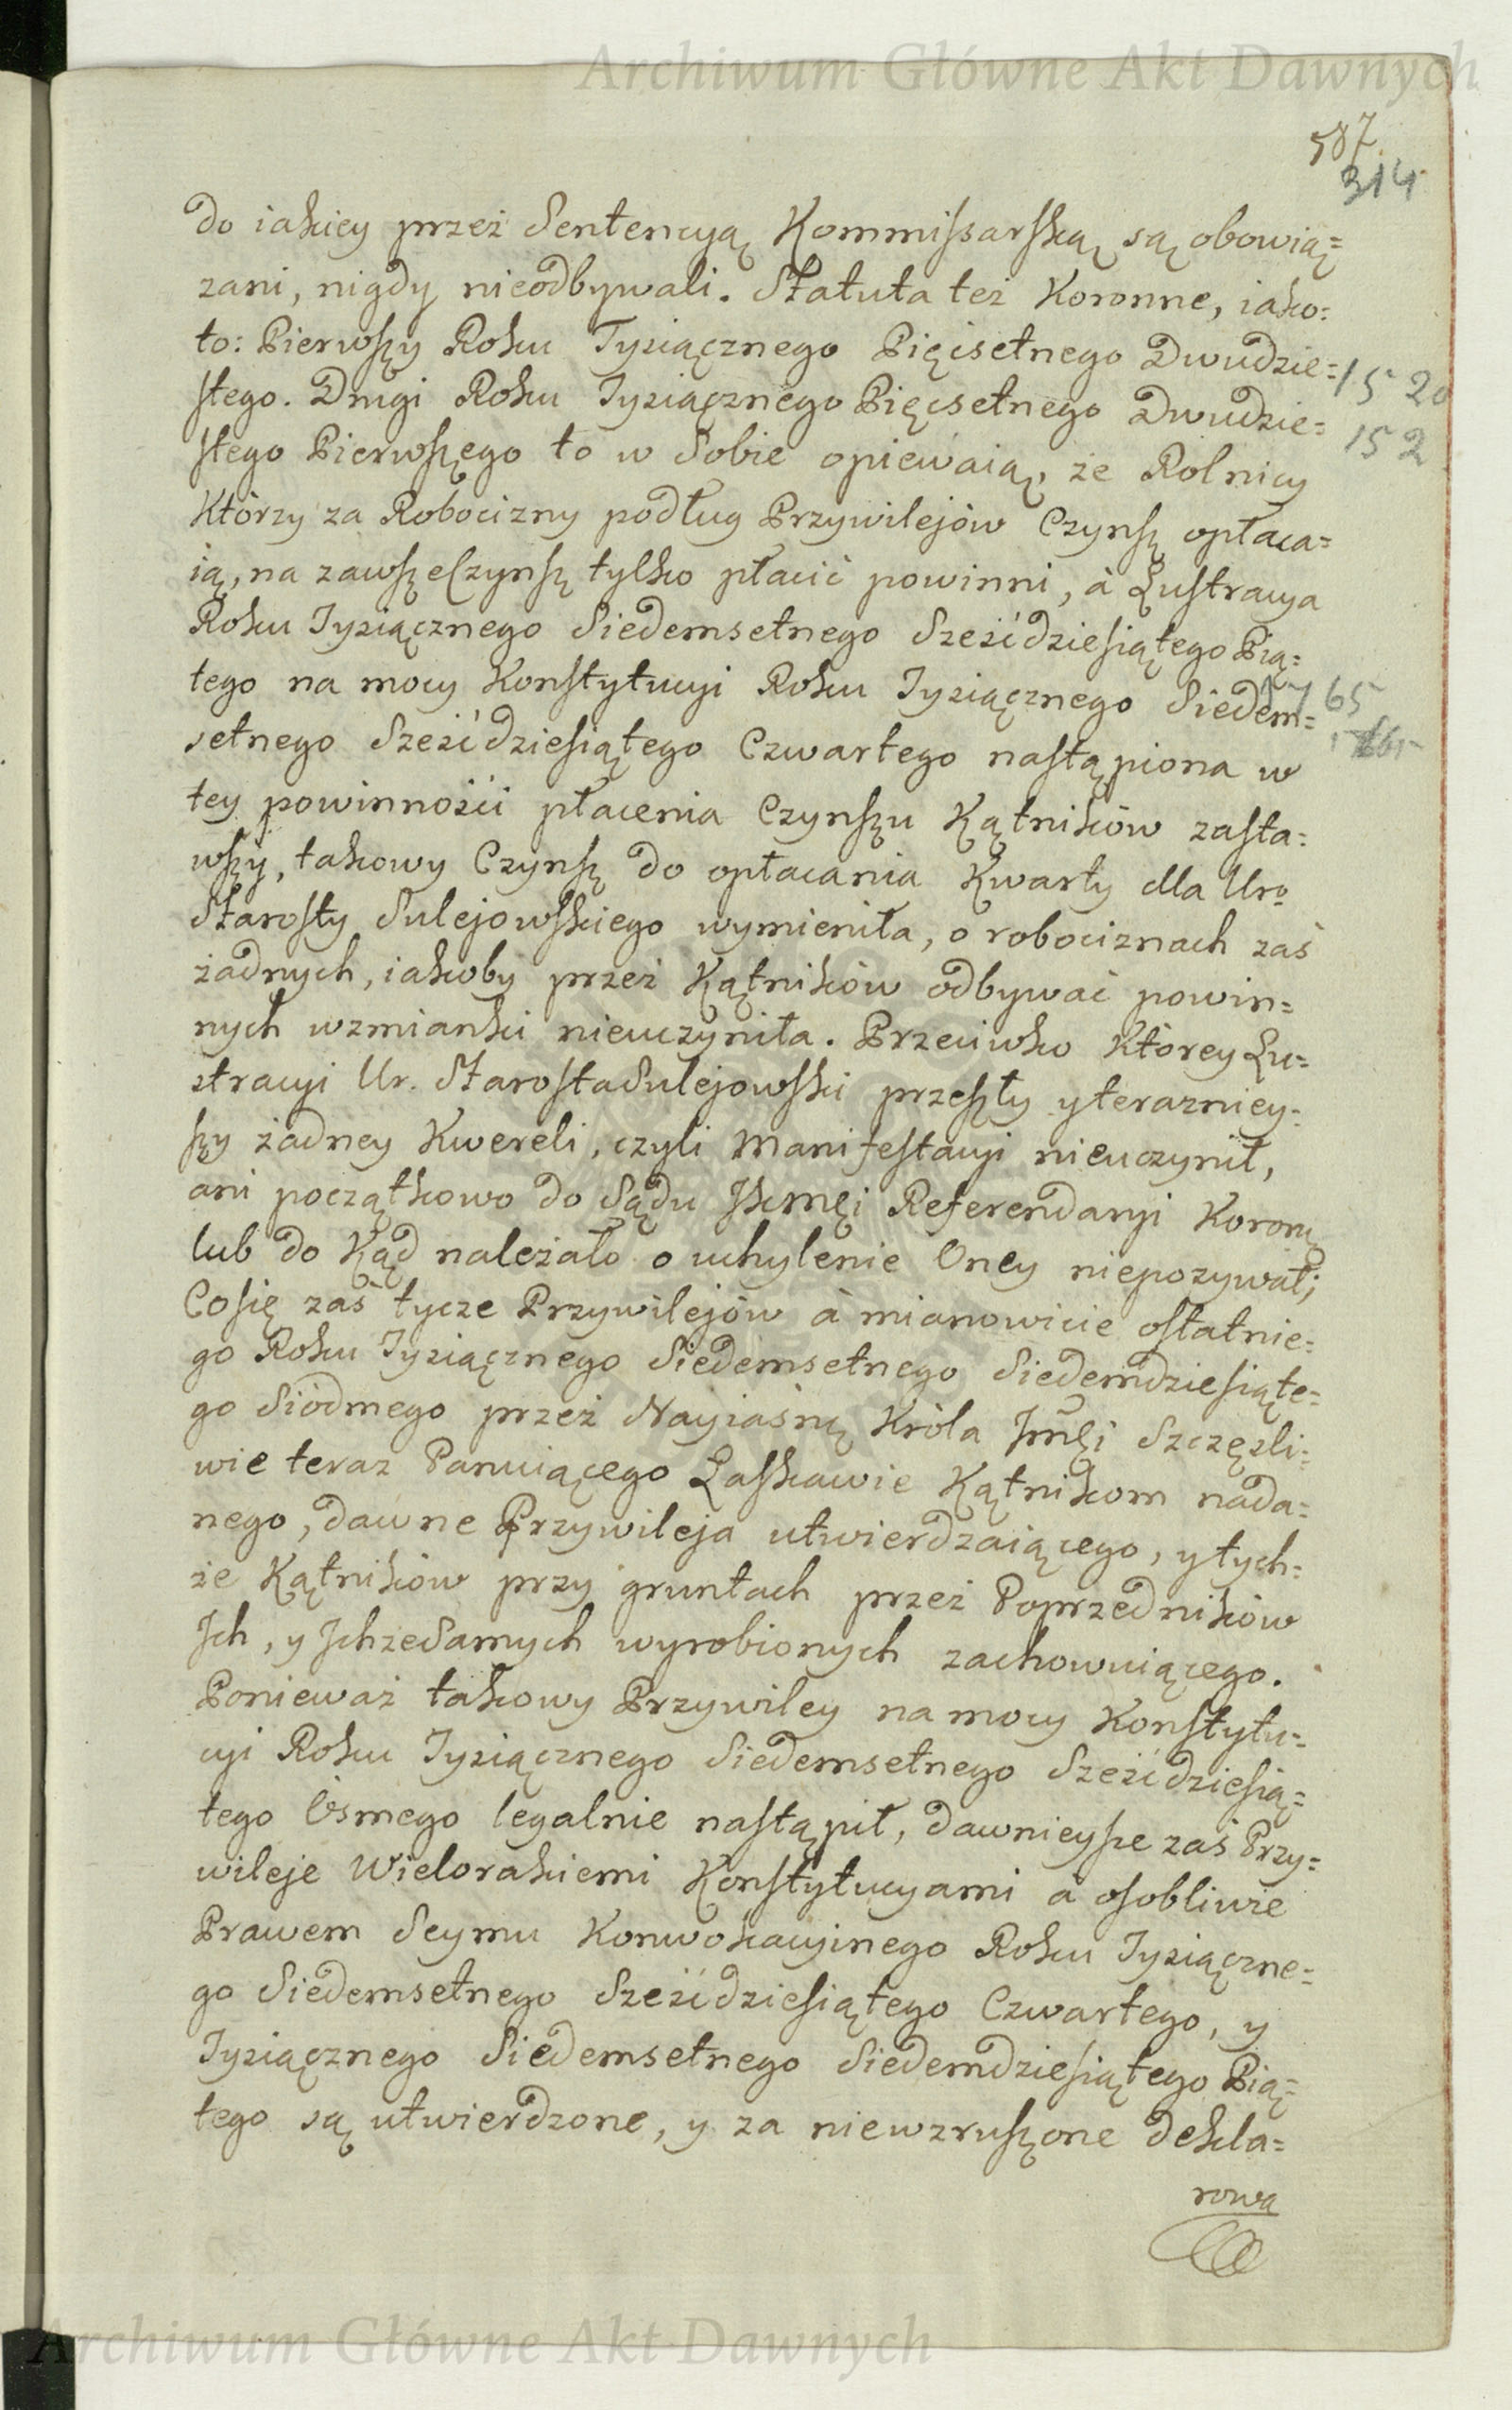 Archiwum Główne Akt Dawnych
587.
314
do iakiey przez Sentencyą Kommissarską są obowią=
zani, nigdy nieodbywali. Statuta też Koronne, iako=
to: Pierwszy Roku Tysiącznego Pięćsetnego Dwudzie=
1520
stego. Drugi Roku Tysiącznego Pięcsetnego Dwudzie=
152
stego Pierwszego to w Sobie opiewaią, że Rolnicy
Którzy za Robocizny podług Przywilejów Czynsz opłaca=
ią, na zawsze Czynsz tylko płacić powinni, à Lustracya
Roku Tysiącznego Siedemsetnego Sześćdziesiątego Pią=
tego na mocy Konstytucyi Roku Tysiącznego Siedem=
1765
setnego Sześćdziesiątego Czwartego nastąpiona w
tey powinności płacenia Czynszu Kątników zasta=
wszy, takowy Czynsz do opłacania Kwarty dla Uro
Starosty Sulejowskiego wymieniła, o robociznach zaś
żadnych, iakoby przez Kątników odbywać powin=
nych wzmianki nieuczyniła. Przeciwko Którey Lu=
stracyi Ur. Starosta Sulejowski przeszły y teraźniey=
szy żadney Kwereli, czyli Manifestacyi nieuczynił,
ani początkowo do Sądu JKmći Referendaryi Koronn
lub do Kąd należało o uchylenie Oney niepozywał;
Co się zaś tycze Przywilejów à mianowicie ostatnie=
go Roku Tysiącznego Siedemsetnego Siedemdziesiąte=
go Siódmego przez Nayiaśn Króla Jmći Szczęśli=
wie teraz Panuiącego Łaskawie Kątnikom nada=
nego, dawne Przywileja utwierdzaiącego, y tych=
że Kątników przy gruntach przez Poprzedników
Jch, y Jchże Samych wyrobionych zachowuiącego.
Ponieważ takowy Przywiley na mocy Konstytu=
cyi Roku Tysiącznego Siedemsetnego Sześćdziesią=
tego Osmego legalnie nastąpił, dawnieysze zaś Przy=
wileje Wielorakiemi Konstytucyami à osobliwie
Prawem Seymu Konwokacyinego Roku Tysiączne=
go Siedemsetnego Sześćdziesiątego Czwartego, y
Tysiącznego Siedemsetnego Siedemdziesiątego Pią=
tego są utwierdzone, y za niewzruszone dekla=
rowa
Archiwum Główne Akt Dawnych